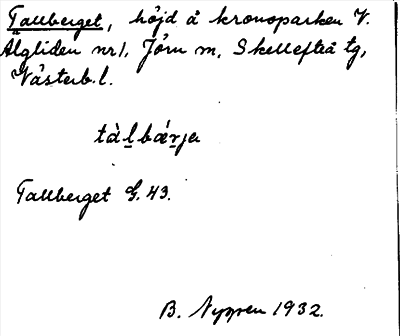 Tallberget, höjd å kronoparken V.
Älgliden nr 1, Jörn sn, Skellefteå tg,
Västerb. l.
tàl̲bǽr̲ja
Tallberget G. 43.
B. Nygren 1932.